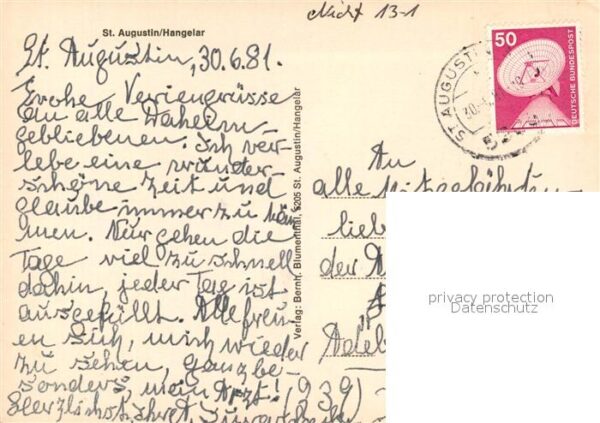 St. Augustin/Hangelar
Nicht 13-1
St. Augustin, 30.6.81.
Frohe Feriengrüsse
an alle Daheim
gebliebenen. Ich ver-
lebe eine wunder-
schöne Zeit und
glaube immer zu
men. Nur gehen die
Tage viel zu schnell
dahin, jeder Tag ist
ausgefüllt. Alle freu-
en sich, mich wieder
zu sehen, ganz be-
sonders, mein Arzt!
Herzlichst
Verlag: Bernh. Blumenthal, 5205 St. Augustin/Hangelar
50
DEUTSCHE BUNDESPOST
ST. AUGUSTIN
An
alle
lieb
der
Adelb
(939)
privacy protection
Datenschutz